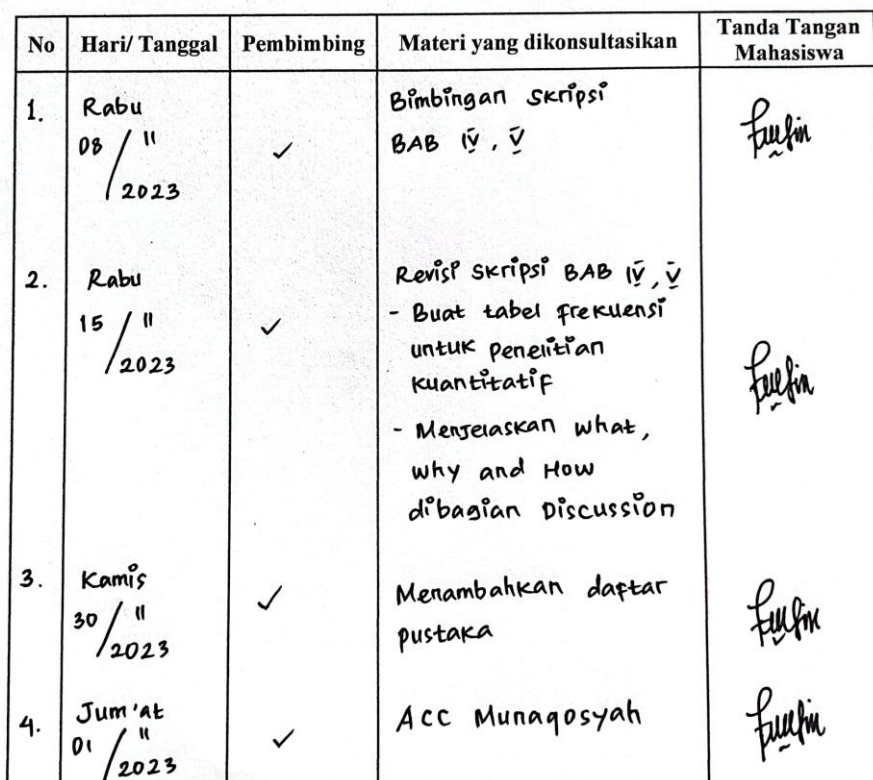 No Hari/ Tanggal Pembimbing Materi yang dikonsultasikan Tanda Tangan
Mahasiswa
1. Rabu
08 / 11
2023
✓
Bimbingan Skripsi
BAB IV, V
2. Rabu
15 / 11
2023
✓
Revisi Skripsi BAB IV, V
- Buat tabel frekuensi
untuk penelitian
kuantitatif
- Menjelaskan what,
why and How
dibagian Discussion
3. Kamis
30 / 11
2023
✓
Menambahkan daftar
pustaka
4. Jum'at
01 / 11
2023
✓
ACC Munaqosyah